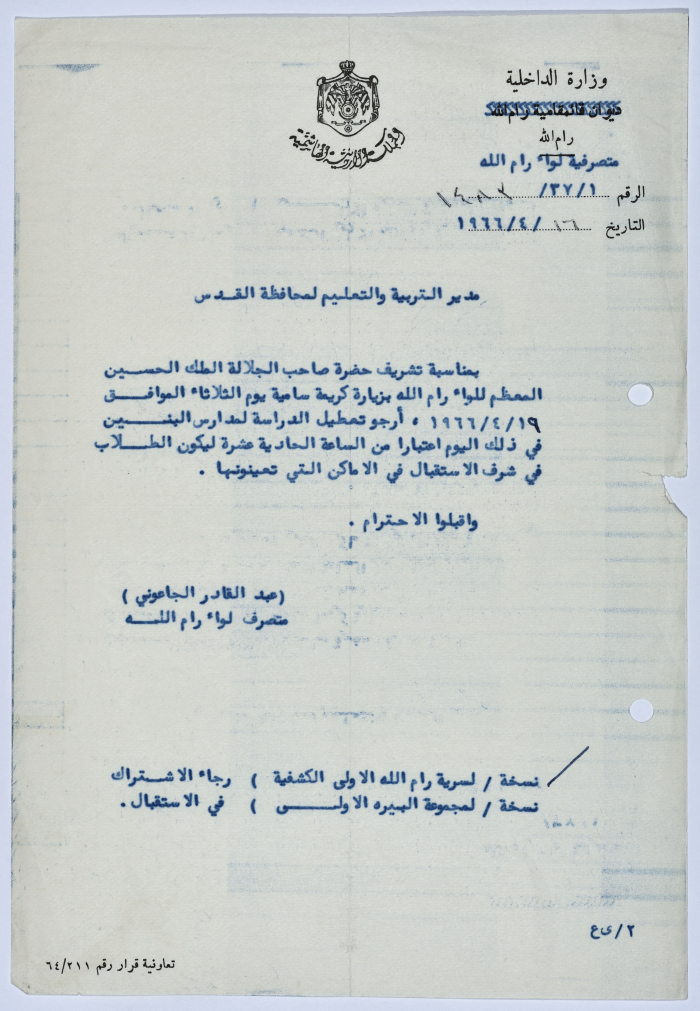 المملكة الأردنية الهاشمية
وزارة الداخلية
ديوان قائمقامية رام الله
رام الله
متصرفية لواء رام الله
الرقم ٣٧/١/
التاريخ ١٦/٤/١٩٦٦
مدير التربية والتعليم لمحافظة القدس
بمناسبة تشريف حضرة صاحب الجلالة الملك الحسين
المعظم للواء رام الله بزيارة كريمة سامية يوم الثلاثاء الموافق
١٩/٤/١٩٦٦ ، أرجو تعطيل الدراسة لمدارس البنين
في ذلك اليوم اعتبارا من الساعة الحادية عشرة ليكون الطلاب
في شرف الاستقبال في الاماكن التي تعينونها .
واقبلوا الاحترام .
(عبد القادر الجاعوني )
متصرف لواء رام الله
نسخة / لسرية رام الله الاولى الكشفية ) رجاء الاشتراك
نسخة / لمجموعة البيره الاولى ) في الاستقبال .
٢/ىع
تعاونية قرار رقم ٦٤/٢١١